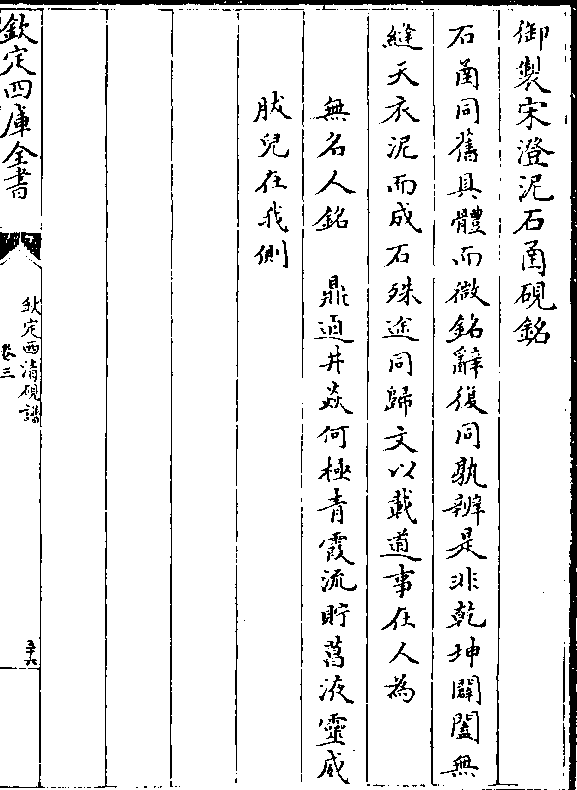 御製宋澄泥石𠧟硯銘
石𠧟同舊具體而微銘辭復同孰辨是非乾坤闢闔無
縫天衣泥而成石殊途同歸文以載道事在人為
無名人銘　鼎逌井焱何極青霞流貯蒕液靈威
肱兒在我側
欽定四庫全書
欽定西清硯譜
卷三
三十六